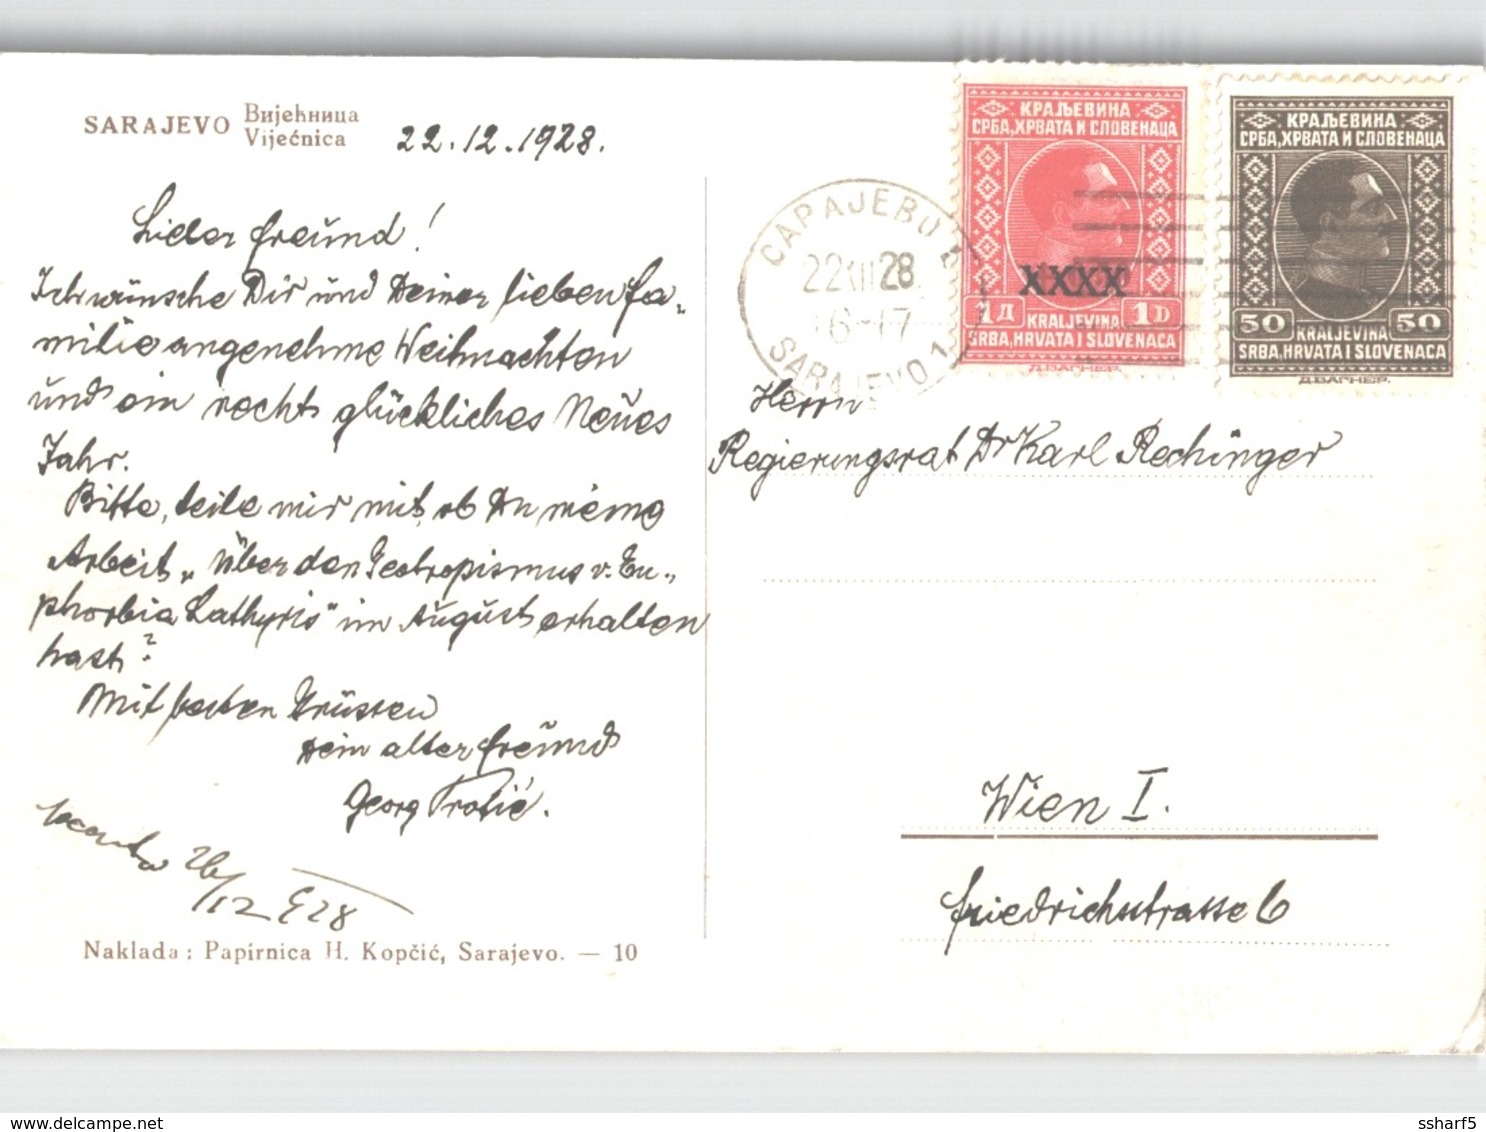 SARAJEVO Вијећница
Vijećnica
22.12.1928.
Lieber Freund!
Ich wünsche Dir und Deiner lieben Fa-
milie angenehme Weihnachten
und ein recht glückliches Neues
Jahr.
Bitte, teile mir mit, ob Du meine
Arbeit „Über den Geotropismus v. Eu-
phorbia Lathyris" im August erhalten
hast?
Mit besten Grüssen
Dein alter Freund
Georg Protić.
26/12 928
Naklada: Papirnica H. Kopčić, Sarajevo. — 10
САРАЈЕВО
22 XII 28
16-17
SARAJEVO 1
КРАЉЕВИНА
СРБА, ХРВАТА И СЛОВЕНАЦА
XXXX
1 Д KRALJEVINA 1 D
SRBA, HRVATA I SLOVENACA
Д. ВАГНЕР.
КРАЉЕВИНА
СРБА, ХРВАТА И СЛОВЕНАЦА
50 KRALJEVINA 50
SRBA, HRVATA I SLOVENACA
Д. ВАГНЕР.
Herrn
Regierungsrat Dr Karl Rechinger
Wien I.
Friedrichstrasse 6
delcampe.net
ssharf5